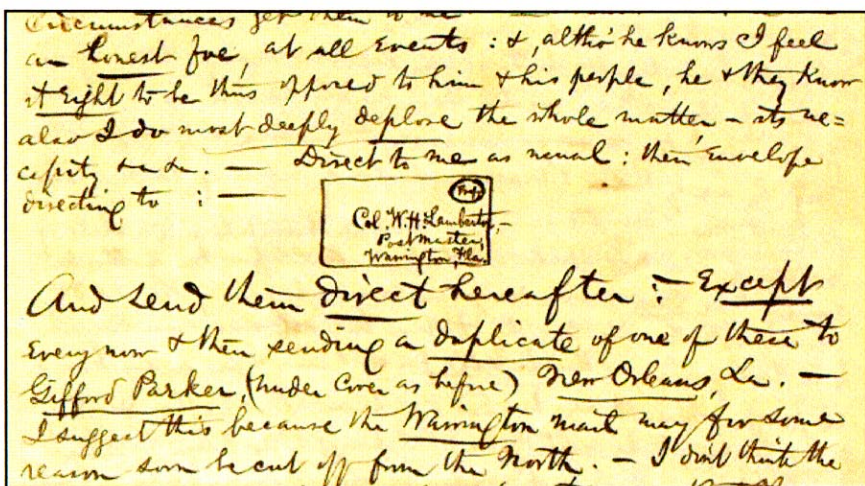 Circumstances get them to me
an honest foe, at all Events : &, altho' he knows I feel
it right to be thus opposed to him & his people, he & they know
also I do most deeply deplore the whole matter – its ne=
cessity &c &c. — Direct to me as usual : then Envelope
directing to : —
Free
Col. W. H. Lamberton,
Postmaster,
Warrington, Fla.
And send them direct hereafter : – Except
Every now & then sending a duplicate of one of these to
Gifford Parker, (under Cover as before) New Orleans, La. —
I suggest this because the Warrington mail may for some
reason soon be cut off from the North. — I don't think the